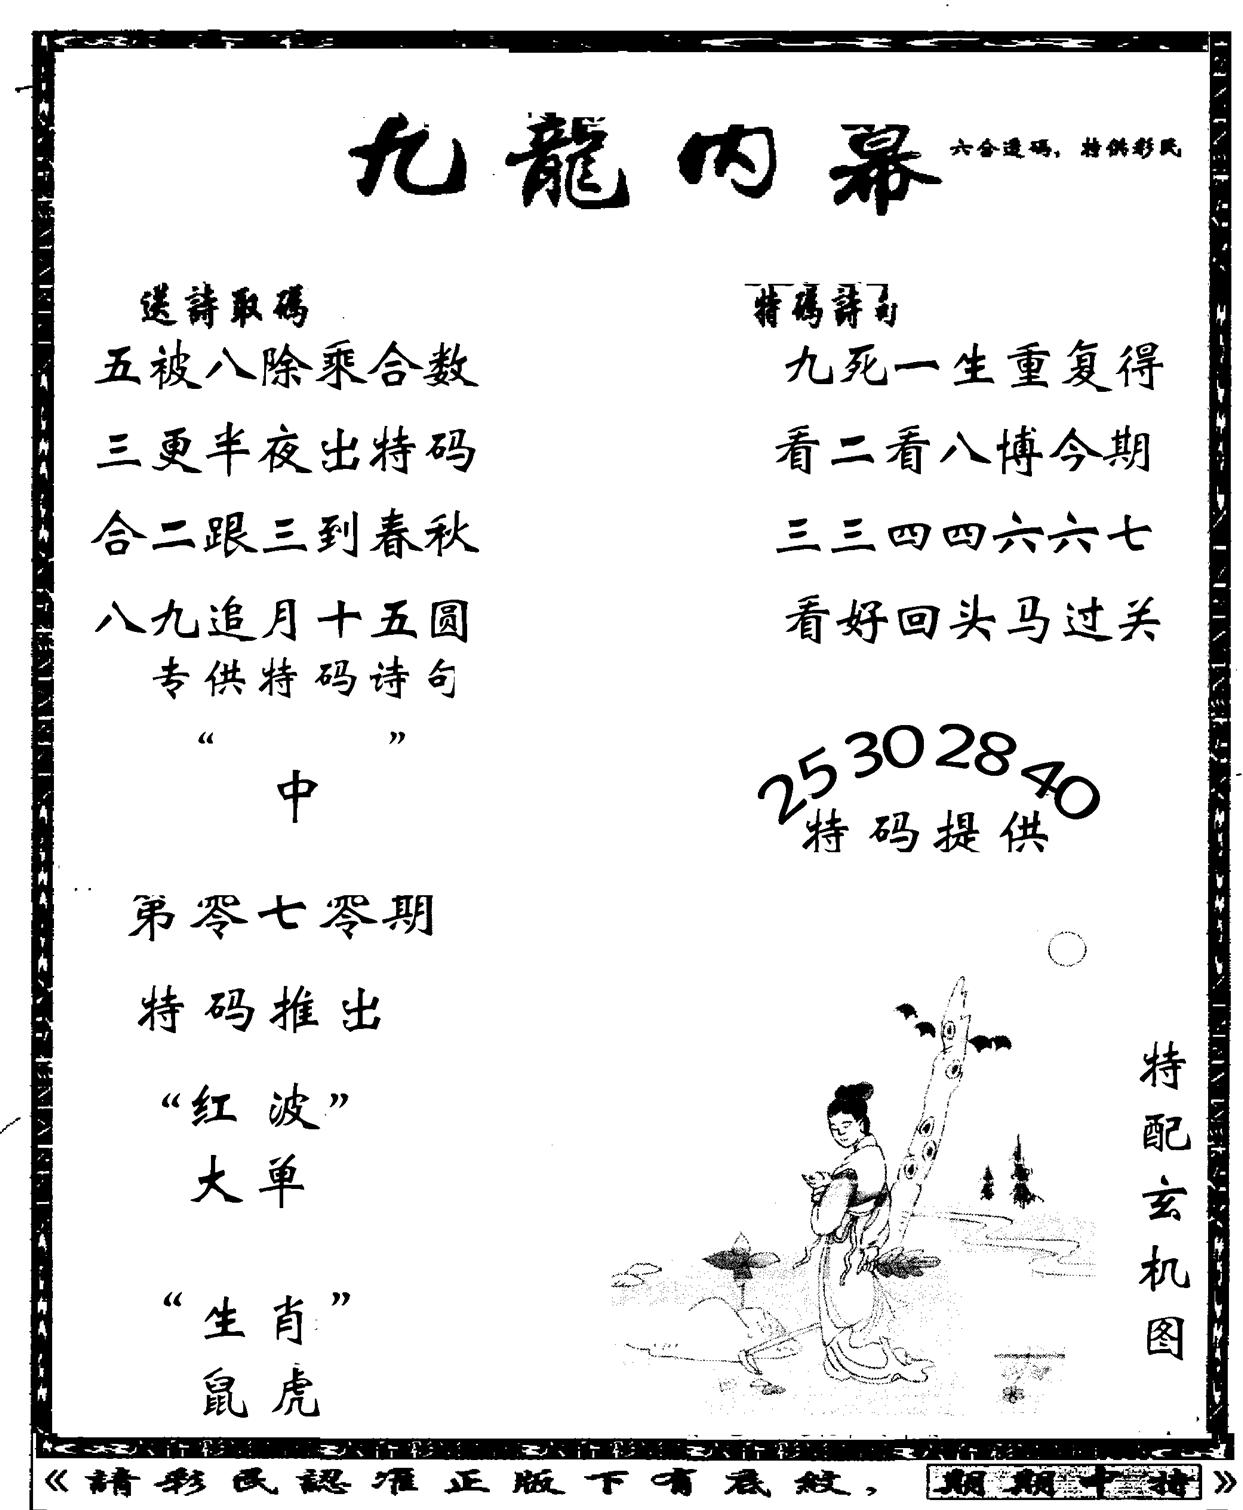 九龍内幕
六合透码，特供彩民
送詩取碼
五被八除乘合数
三更半夜出特码
合二跟三到春秋
八九追月十五圆
专供特码诗句
“ ”
中
第零七零期
特码推出
“红波”
大单
“生肖”
鼠虎
特碼詩句
九死一生重复得
看二看八博今期
三三四四六六七
看好回头马过关
25 30 28 40
特码提供
特配玄机图
《請彩民認准正版下有底紋，期期中特》